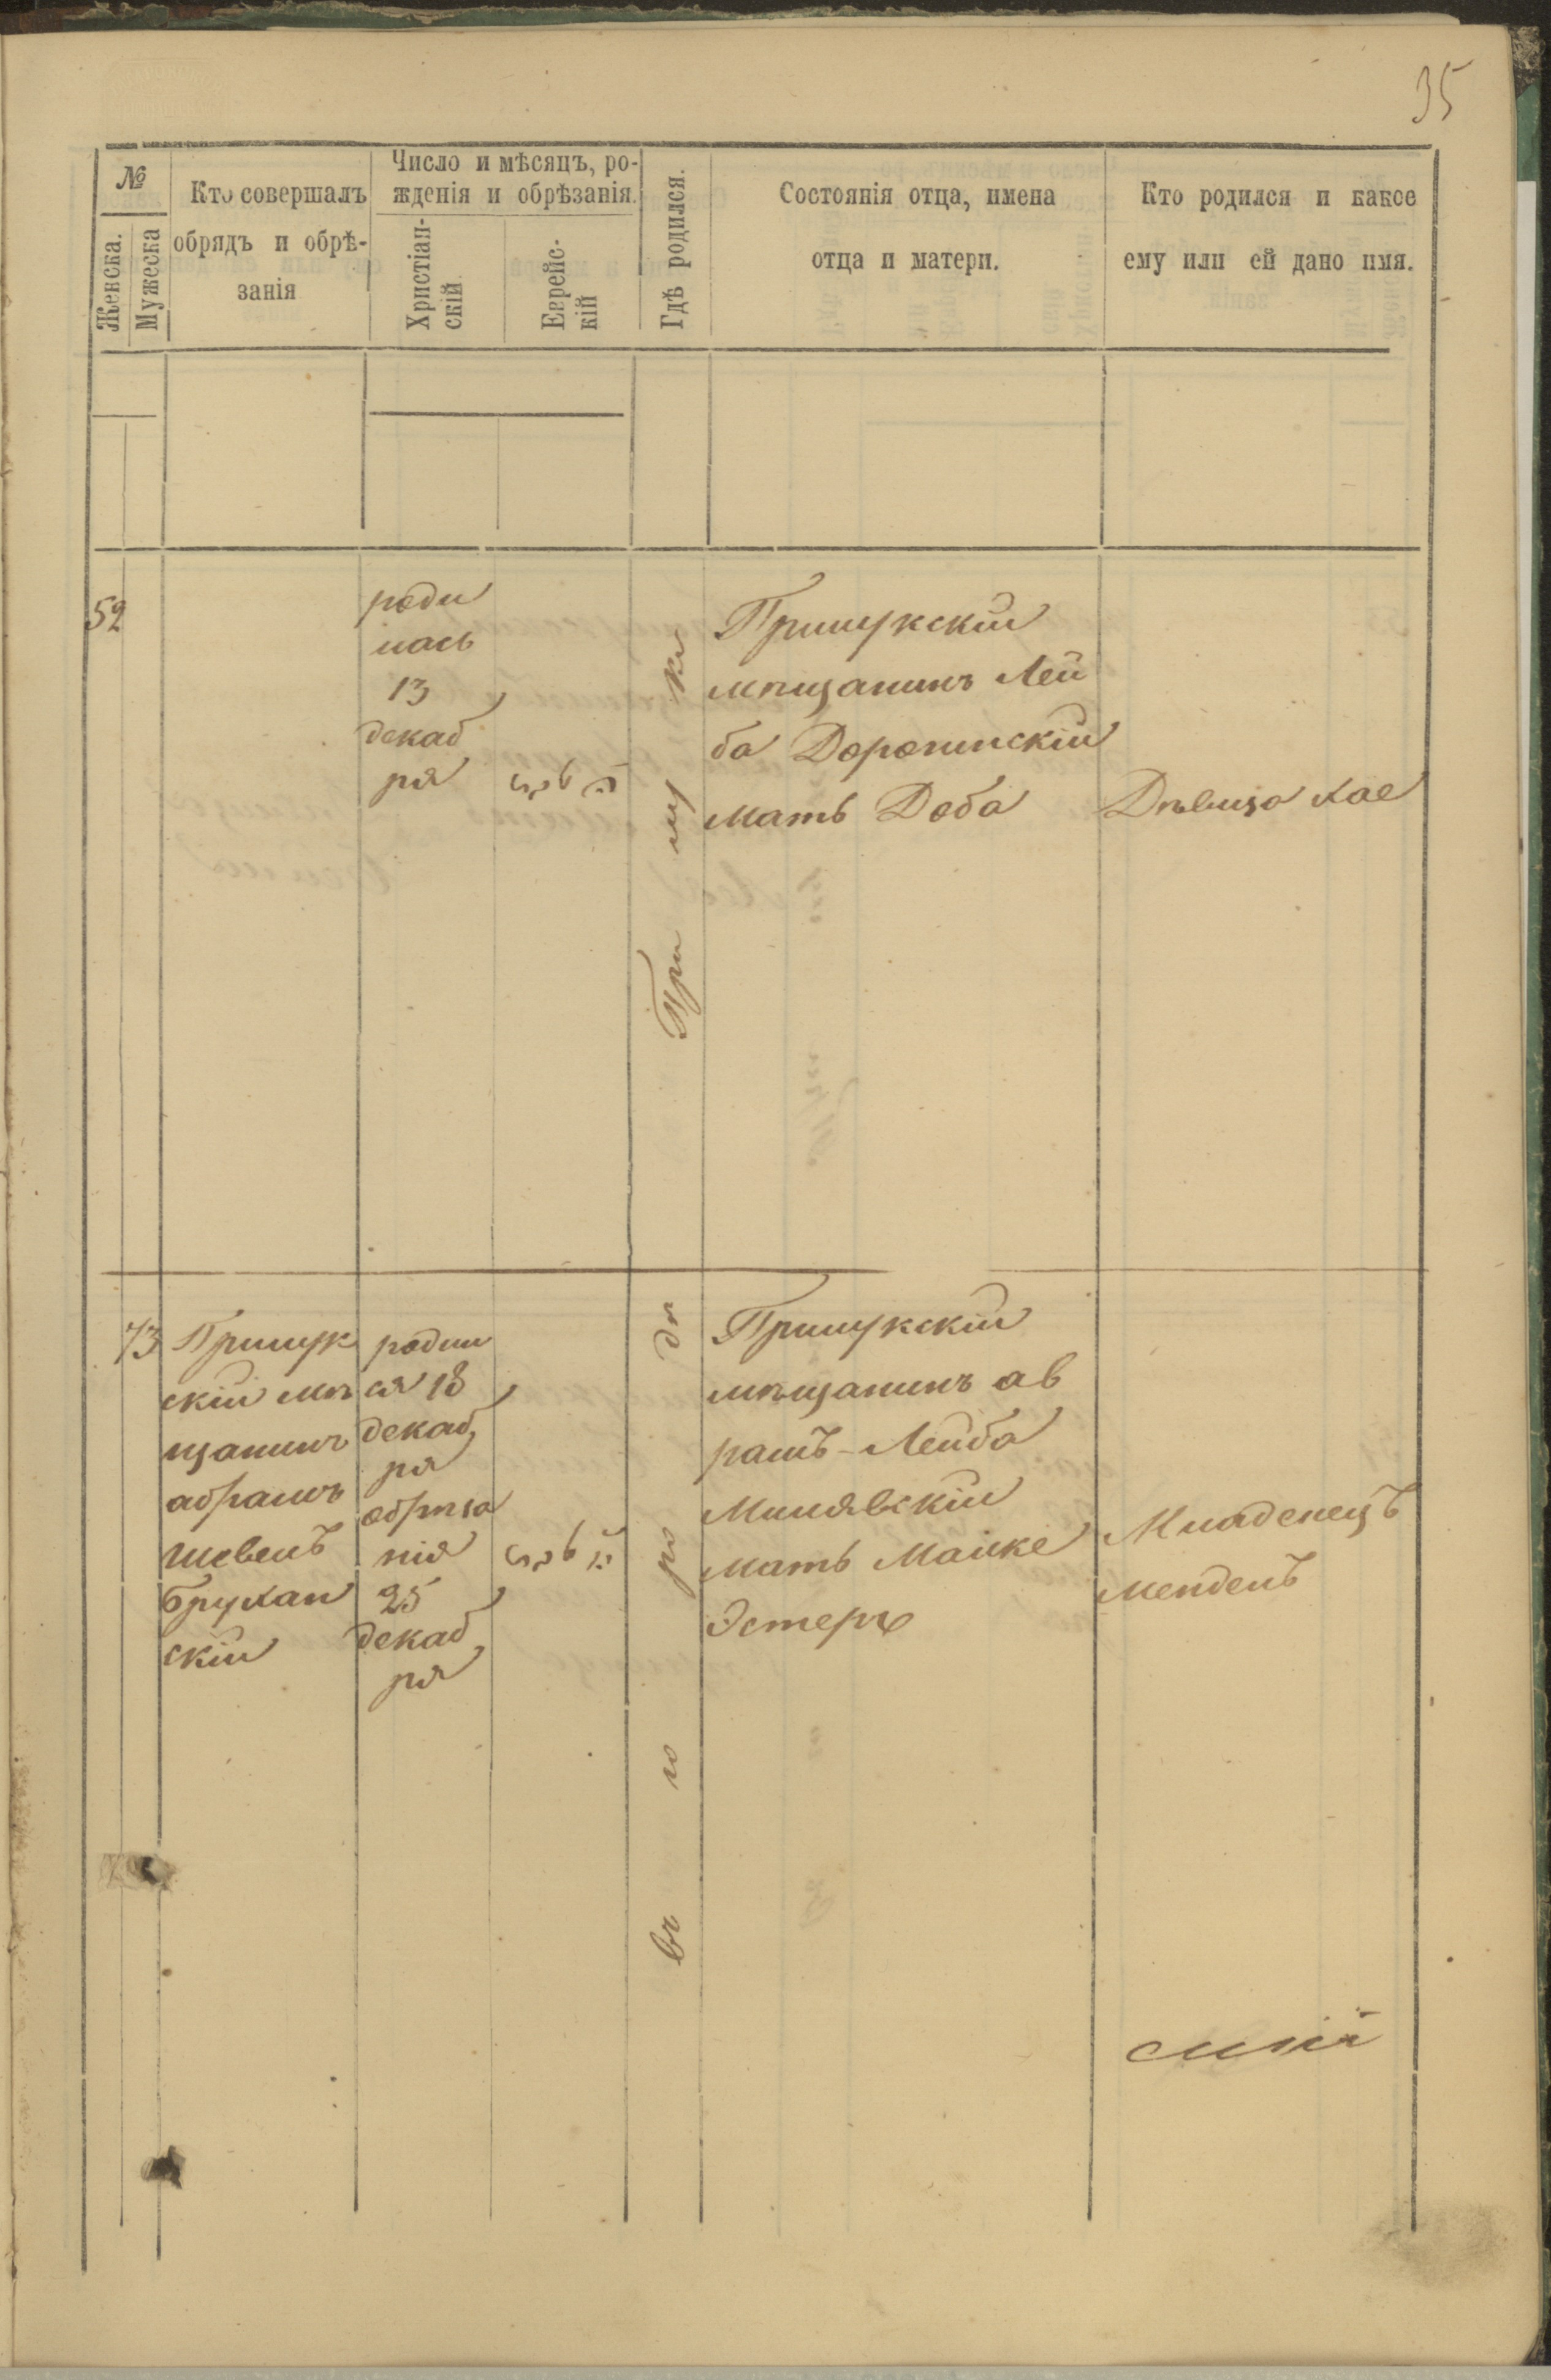 35
№
Женска.
Мужеска
Кто совершалъ
обрядъ и обрѣ-
занія
Число и мѣсяцъ, ро-
жденія и обрѣзанія.
Христіан-
скій
Еврейс-
кій
Гдѣ родился.
Состоянія отца, имена
отца и матери.
Кто родился и какое
ему или ей дано имя.
52
роди
лась
13
декаб
ря
Прилукскій
мѣщанинъ Лей
ба Доротинскій
мать Доба
Дѣвица Хае
При лу ки
73
Прилук
скій мѣ
щанинъ
абрамъ
шевелъ
Брухан
скій
родил
ся 18
декаб
ря
обрѣза
нія
25
декаб
ря
въ го ро дѣ
Прилукскій
мѣщанинъ ав
рамъ-Лейба
Милявскій
мать Малке
Эстеръ
Младенецъ
мендель